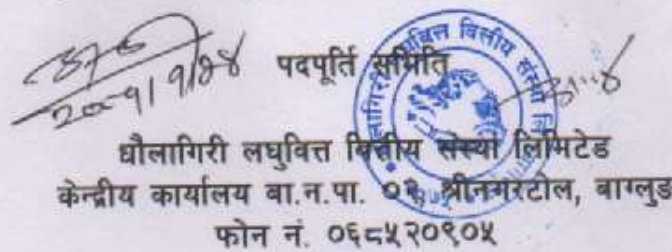 पदपूर्ति समिति
धौलागिरी लघुवित्त वित्तीय संस्था लिमिटेड
केन्द्रीय कार्यालय बा.न.पा. ०२, श्रीनगरटोल, बाग्लुङ
फोन नं. ०६८५२०९०५